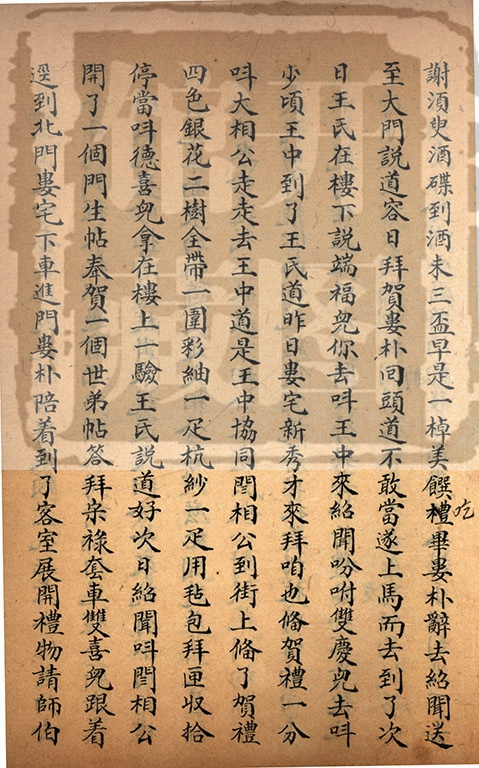 謝須臾酒碟到酒未三盃早是一棹美饌吃禮畢婁朴辭去紹聞送
至大門說道容日拜賀婁朴回頭道不敢當遂上馬而去到了次
日王氏在樓下說端福兒你去呌王中來紹聞吩咐雙慶兒去呌
少頃王中到了王氏道昨日婁宅新秀才來拜咱也俻賀禮一分
呌大相公走走去王中道是王中協同閻相公到街上俻了賀禮
四色銀花二樹全帶一圍彩紬一疋杭紗一疋用毡包拜匣収拾
停當呌德喜兒拿在樓上一驗王氏說道好次日紹聞呌閻相公
開了一個門生帖奉賀一個世弟帖答拜宋祿套車雙喜兒跟着
逕到北門婁宅下車進門婁朴陪着到了客室展開禮物請師伯